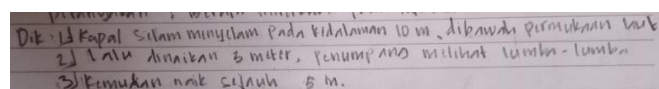 Dik: 1) Kapal Selam menyelam pada kedalaman 10 m, dibawah permukaan laut
2) Lalu dinaikan 3 meter, penumpang melihat lumba-lumba
3) Kemudian naik sejauh 5 m.